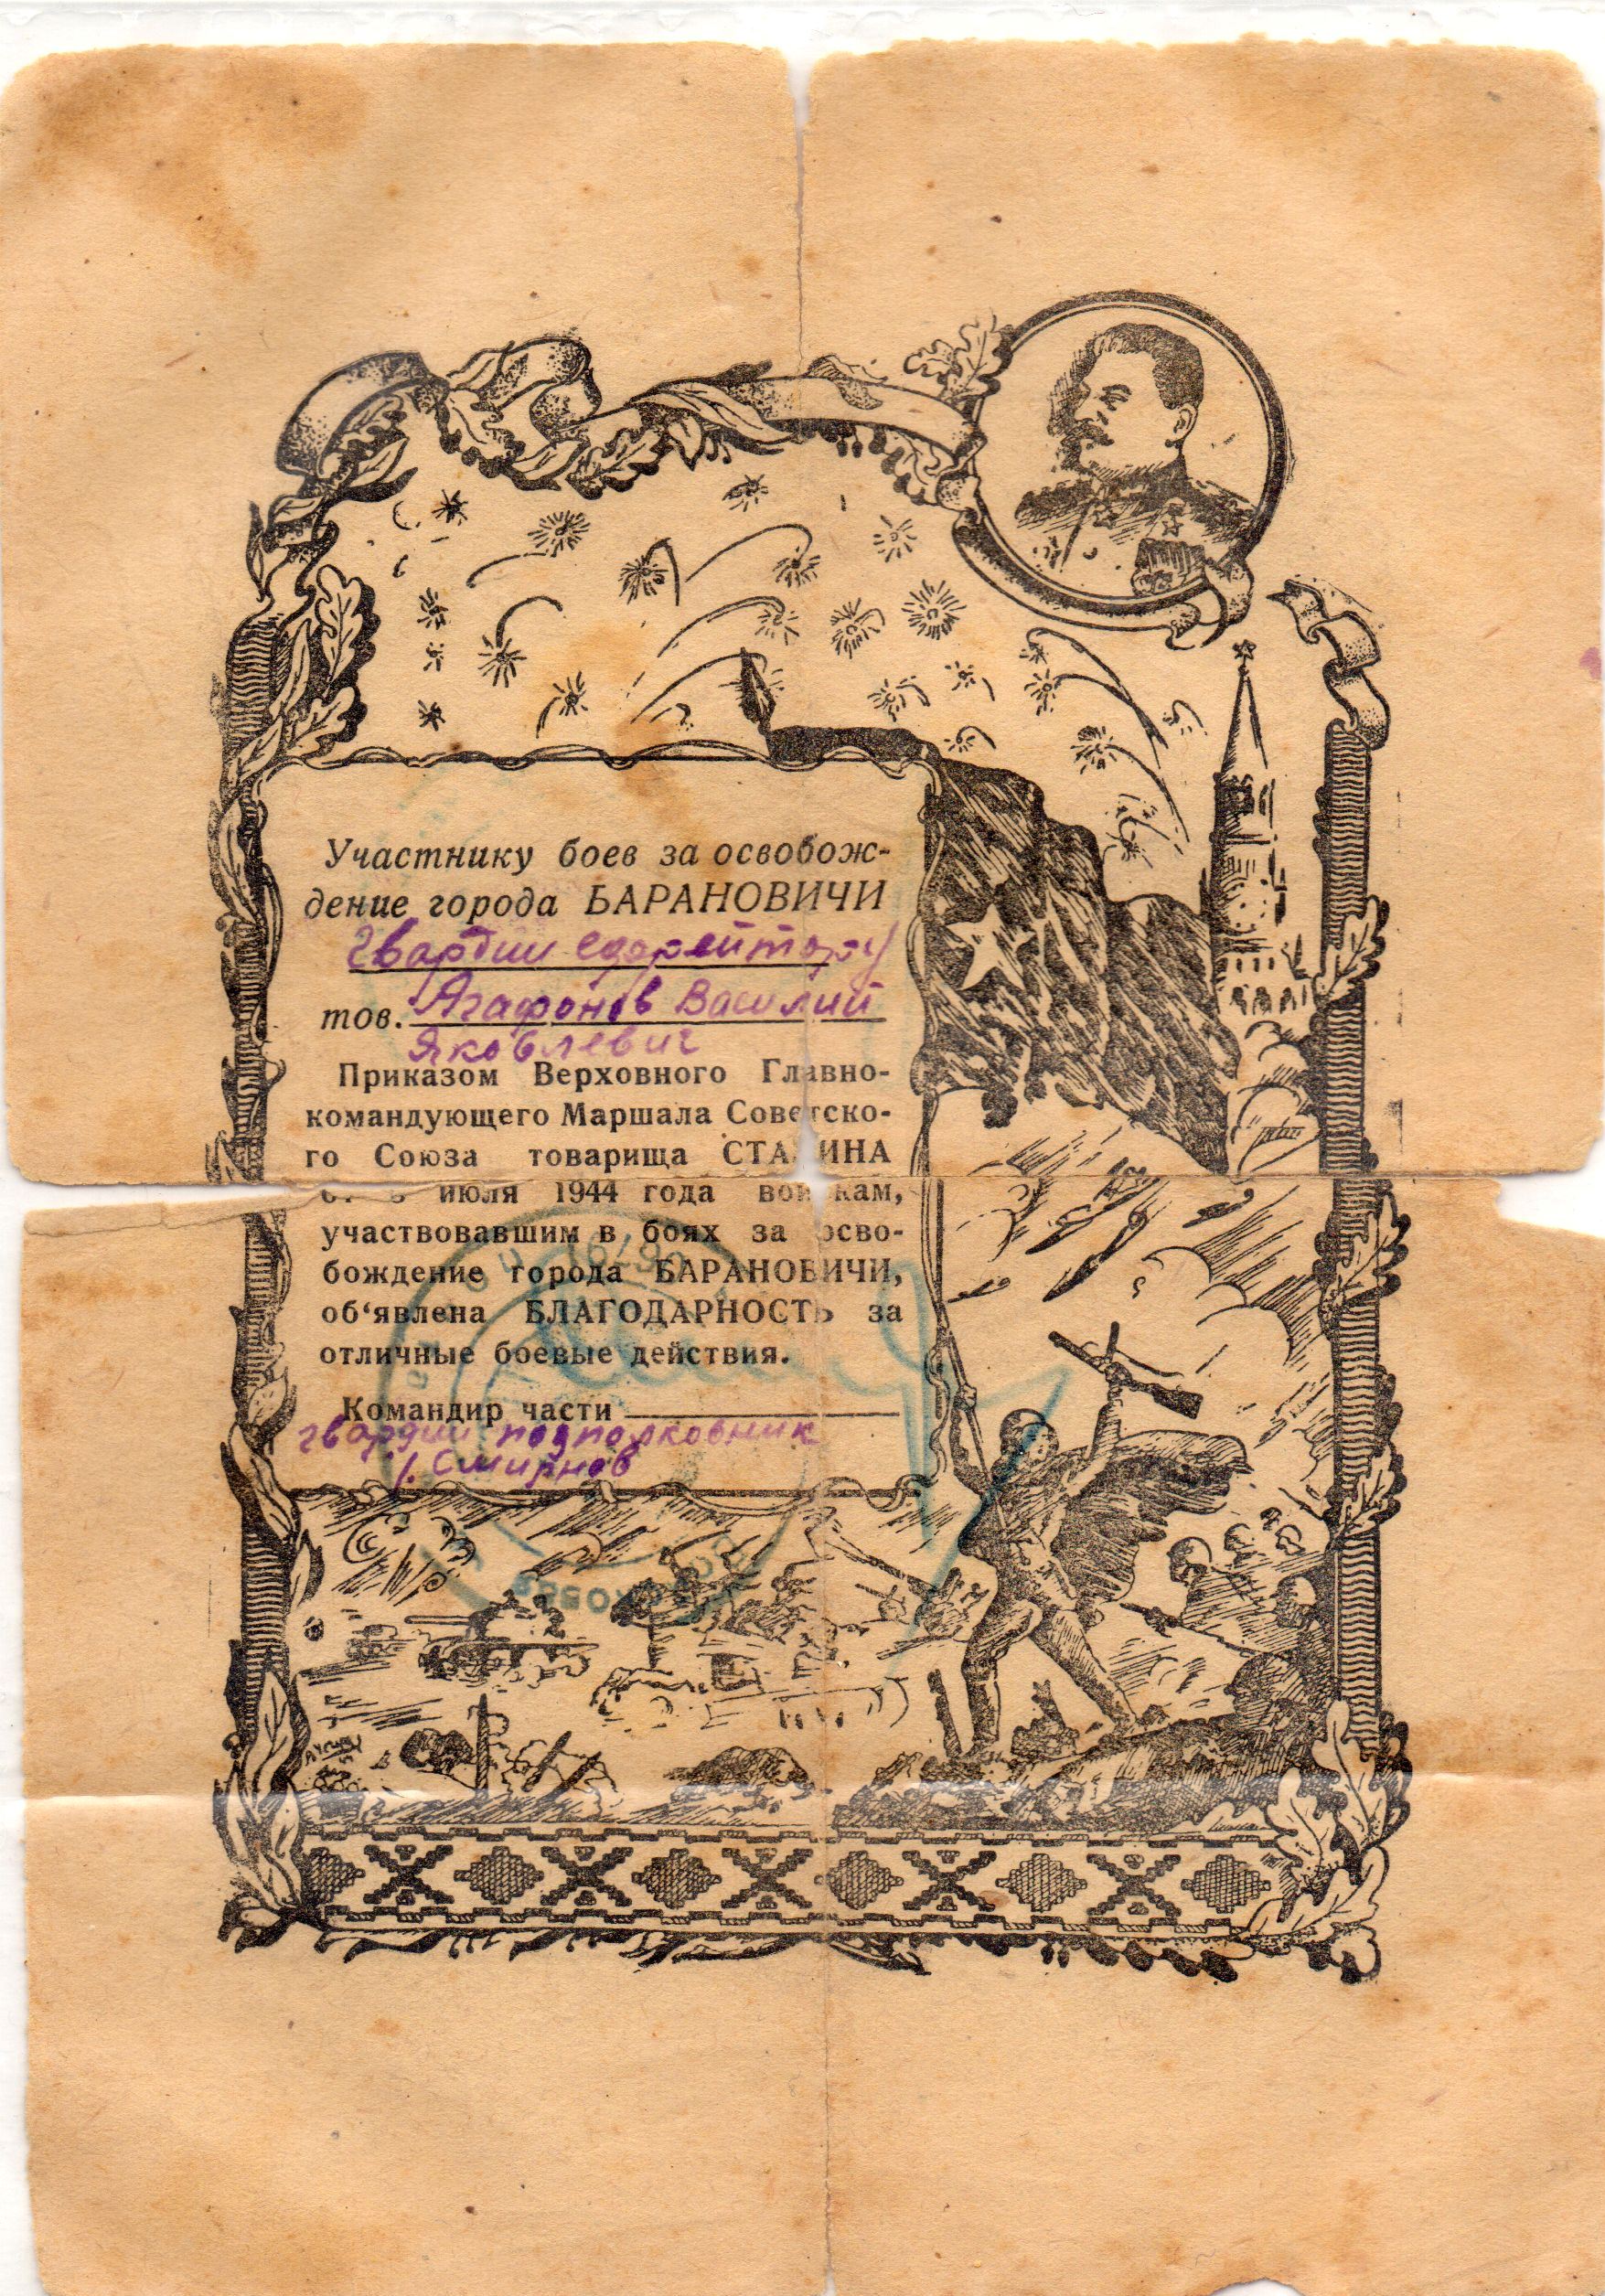 Участнику боев за освобож-
дение города БАРАНОВИЧИ
гвардии ефрейтору
тов. Агафонов Василий
Яковлевич
Приказом Верховного Главно-
командующего Маршала Советско-
го Союза товарища СТАЛИНА
от 8 июля 1944 года войскам,
участвовавшим в боях за осво-
бождение города БАРАНОВИЧИ,
об‘явлена БЛАГОДАРНОСТЬ за
отличные боевые действия.
Командир части
гвардии подполковник
Смирнов